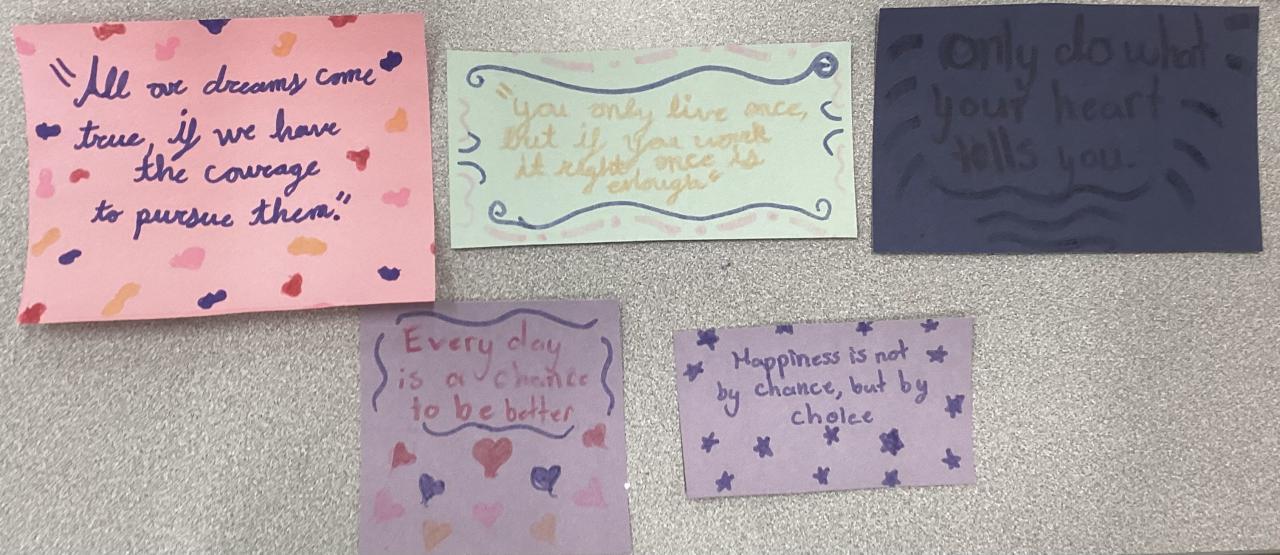 "All our dreams come
true, if we have
the courage
to pursue them."
"You only live once,
but if you work
it right once is
enough"
Only do what
your heart
tells you.
Every day
is a chance
to be better
Happiness is not
by chance, but by
choice